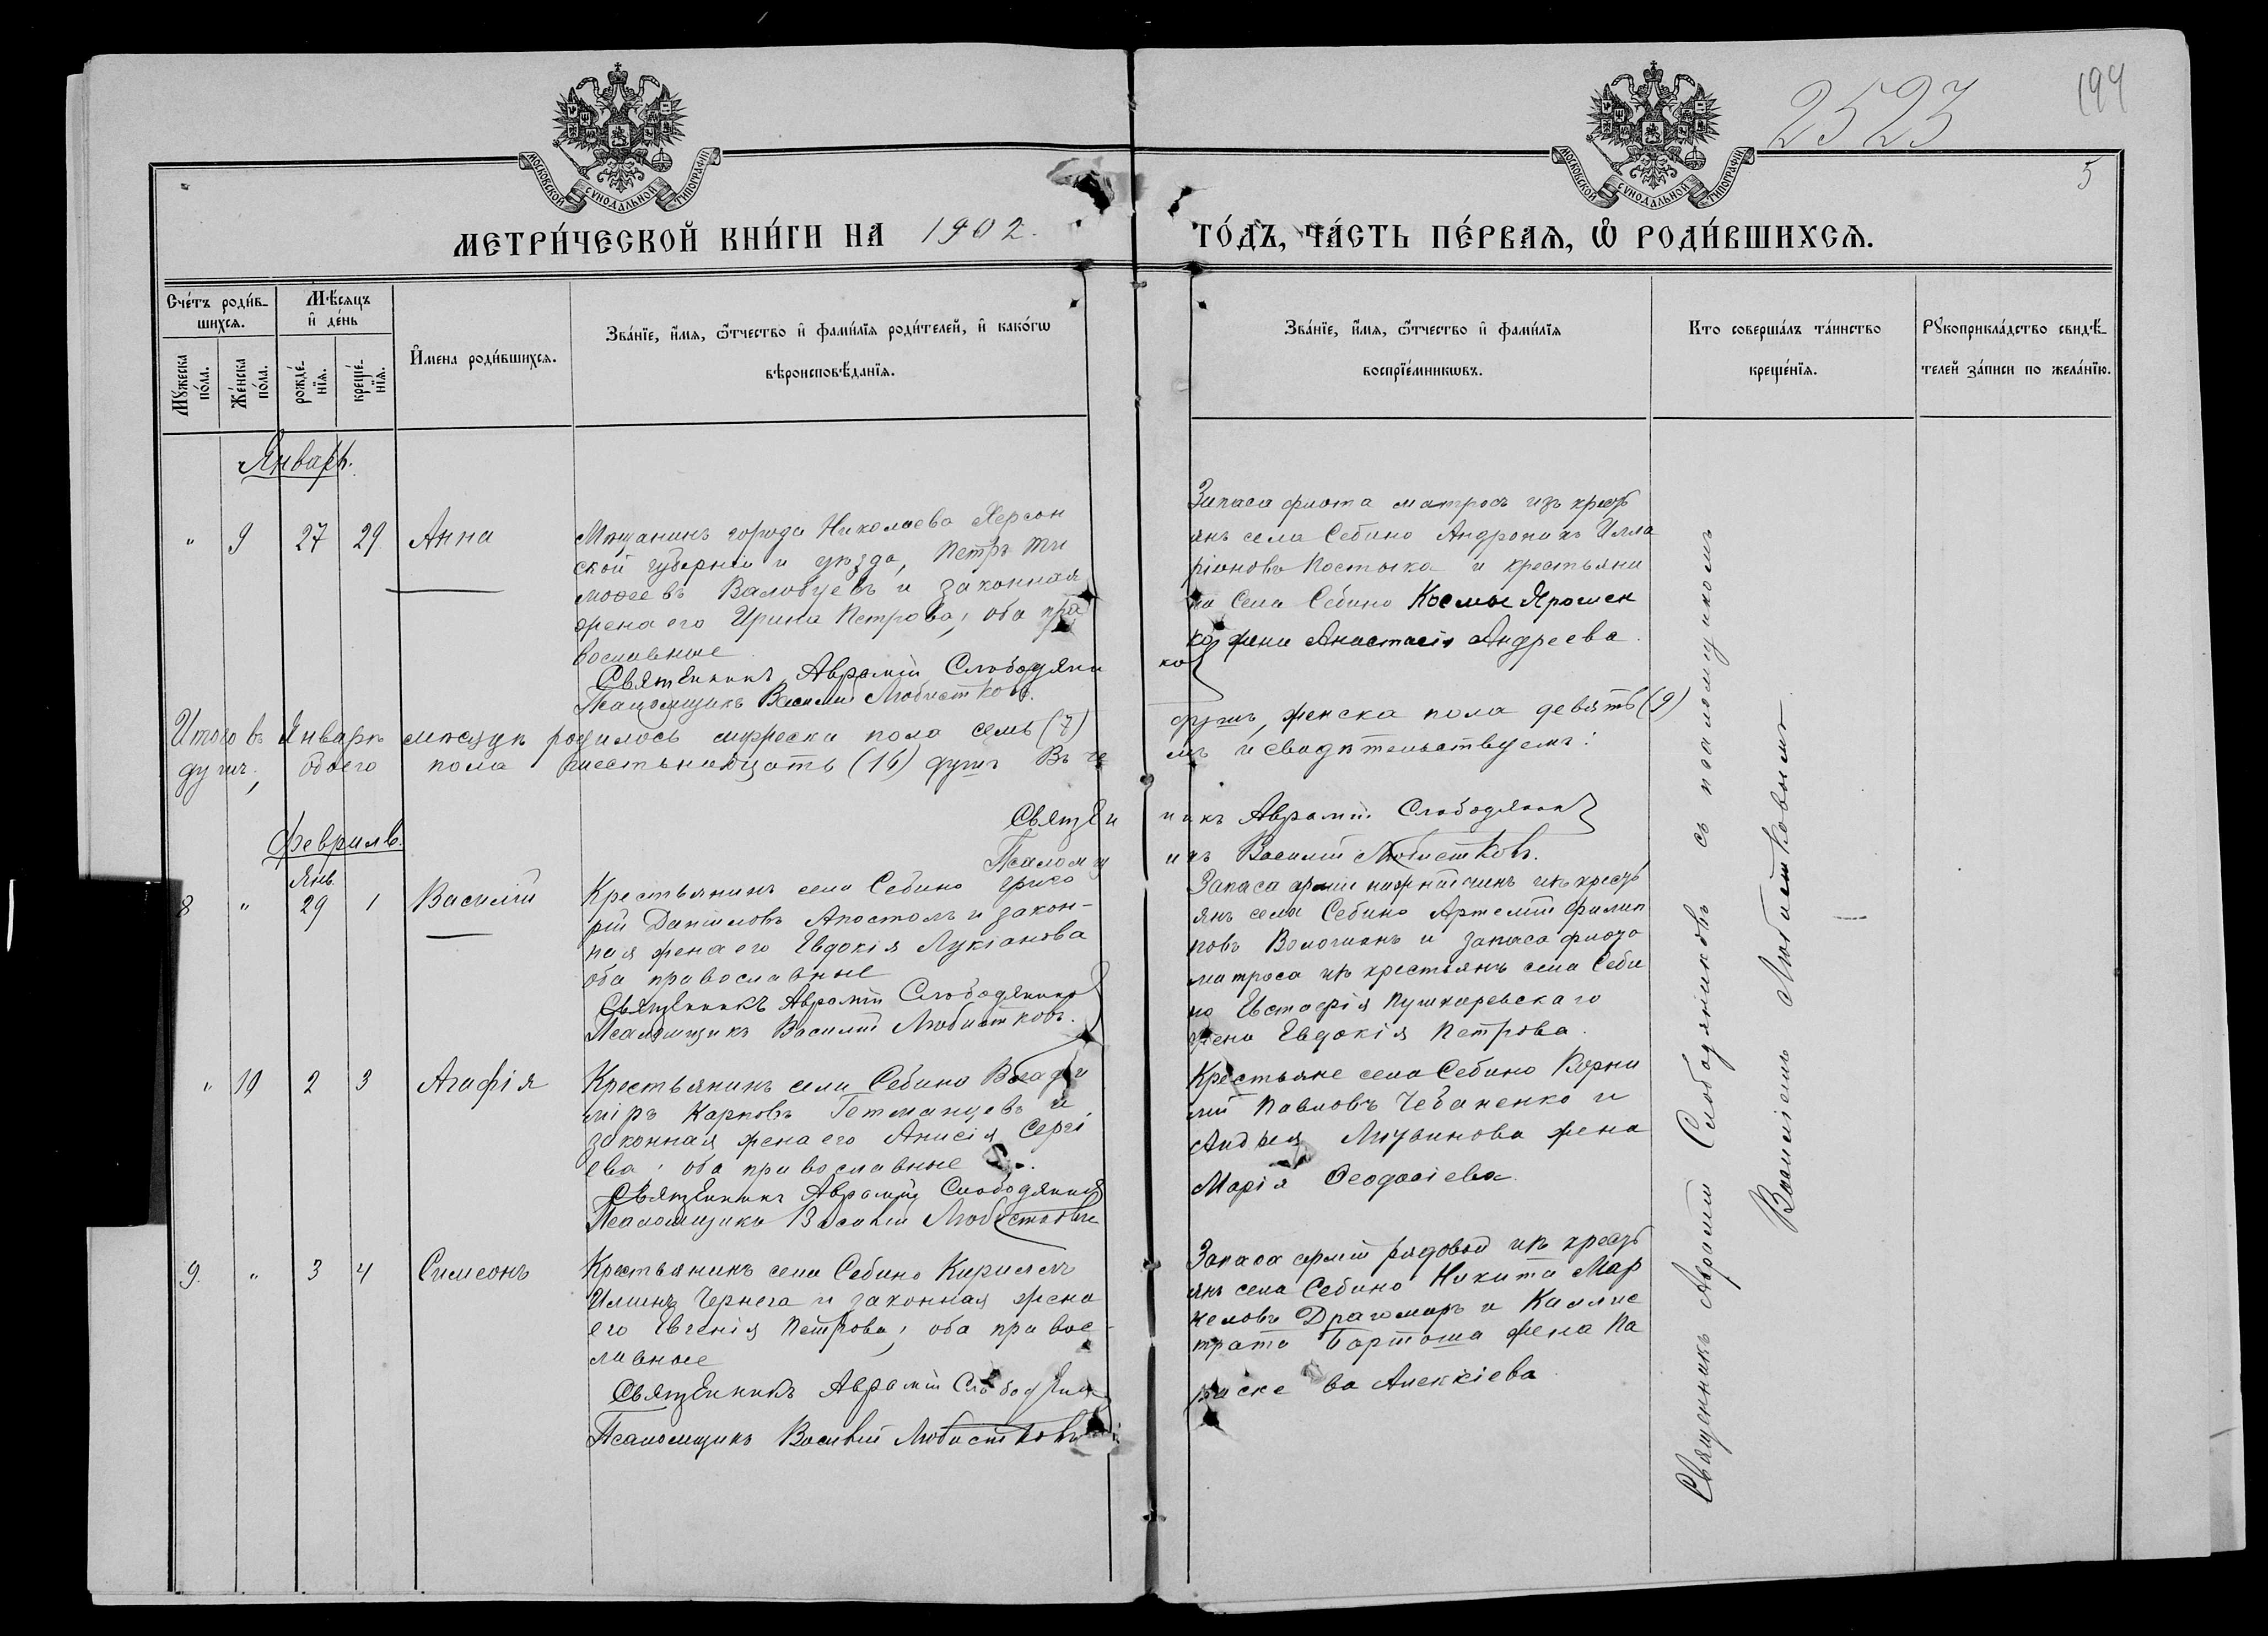 2523
194
5
МОСКОВСКОЙ СУНОДАЛЬНОЙ ТИПОГРАФІИ
МОСКОВСКОЙ СУНОДАЛЬНОЙ ТИПОГРАФІИ
МЕТРИ́ЧЕСКОЙ КНИ́ГИ НА 1902.
ГО́ДЪ, ЧА́СТЬ ПЕ́РВАѦ, Ѡ҆ РОДИ́ВШИХСѦ.
Сче́тъ роди́в-
шихсѧ.
Мꙋжеска по́ла.
Же́нска по́ла.
Мѣ́сѧцъ
и҆ де́нь
рожде́-
нїѧ.
креще́-
нїѧ.
И҆мена роди́вшихсѧ.
Зва́нїе, и҆́мѧ, ѻ҆́тчество и҆ фами́лїѧ роди́телей, и҆ како́гѡ
вѣроисповѣ́данїѧ.
Зва́нїе, и҆́мѧ, ѻ҆́тчество и҆ фами́лїѧ
воспрїе́мникѡвъ.
Кто соверша́лъ та́инство
креще́нїѧ.
Рꙋкоприкла́дство свидѣ́-
телей за́писи по жела́нїю.
Январь.
" 9 27 29 Анна
Мѣщанинъ города Николаева Херсон
ской губерніи и уѣзда, Петръ Ти
моѳеевъ Валовуевъ и законная
жена его Ирина Петрова; оба пра
вославные
Священникъ Аврамій Слободяни
ковъ
Псаломщикъ Василій Любистковъ.
Запаса флота матросъ изъ кресть
янъ села Себино Андроникъ Илла
ріоновъ Костыка и крестьяни
на села Себино Космы Ярошен
ко жена Анастасія Андреева
Итого въ Январѣ мѣсяцѣ родилось мужеска пола семь (7)
душъ, женска пола девять (9)
душъ, обоего пола шестьнадцать (16) душъ Въ че
мъ и свидѣтельствуемъ:
Священникъ Аврамій Слободяник
Псаломщикъ Василій Любистковъ.
Февраль.
Янв.
8 " 29 1 Василій
Крестьянинъ села Себино Григо
рій Даниловъ Апостолъ и закон-
ная жена его Евдокія Лукіанова
оба православные
Священникъ Аврамій Слободянико
Псаломщикъ Василій Любистковъ.
Запаса арміи нижній чинъ изъ кресть
янъ села Себино Артемій Филип
повъ Волошинъ и запаса флота
матроса изъ крестьянъ села Себи
но Евстафія Пушкаревскаго
жена Евдокія Петрова.
" 10 2 3 Агафія
Крестьянинъ села Себино Влади
міръ Карповъ Гетманцевъ и
законная жена его Анисія Сергі
ева; оба православные
Священникъ Аврамій Слободяник
Псаломщикъ Василій Любистковъ
Крестьяне села Себино Корни
лій Павловъ Чебаненко и
Андрея Литвинова жена
Марія Ѳеодосіева
9. " 3 4 Симеонъ
Крестьянинъ села Себино Кириллъ
Илиинъ Чернега и законная жена
его Евгенія Петрова; оба правос-
лавные
Священникъ Аврамій Слободяник
Псаломщикъ Василій Любистковъ
Запаса арміи рядовой изъ кресть
янъ села Себино Никита Мар
келовъ Драгомиръ и Каллис
трата Бартоша жена Па
раскева Алексіева
Священникъ Аврамій Слободяниковъ съ псаломщикомъ
Василіемъ Любистковымъ